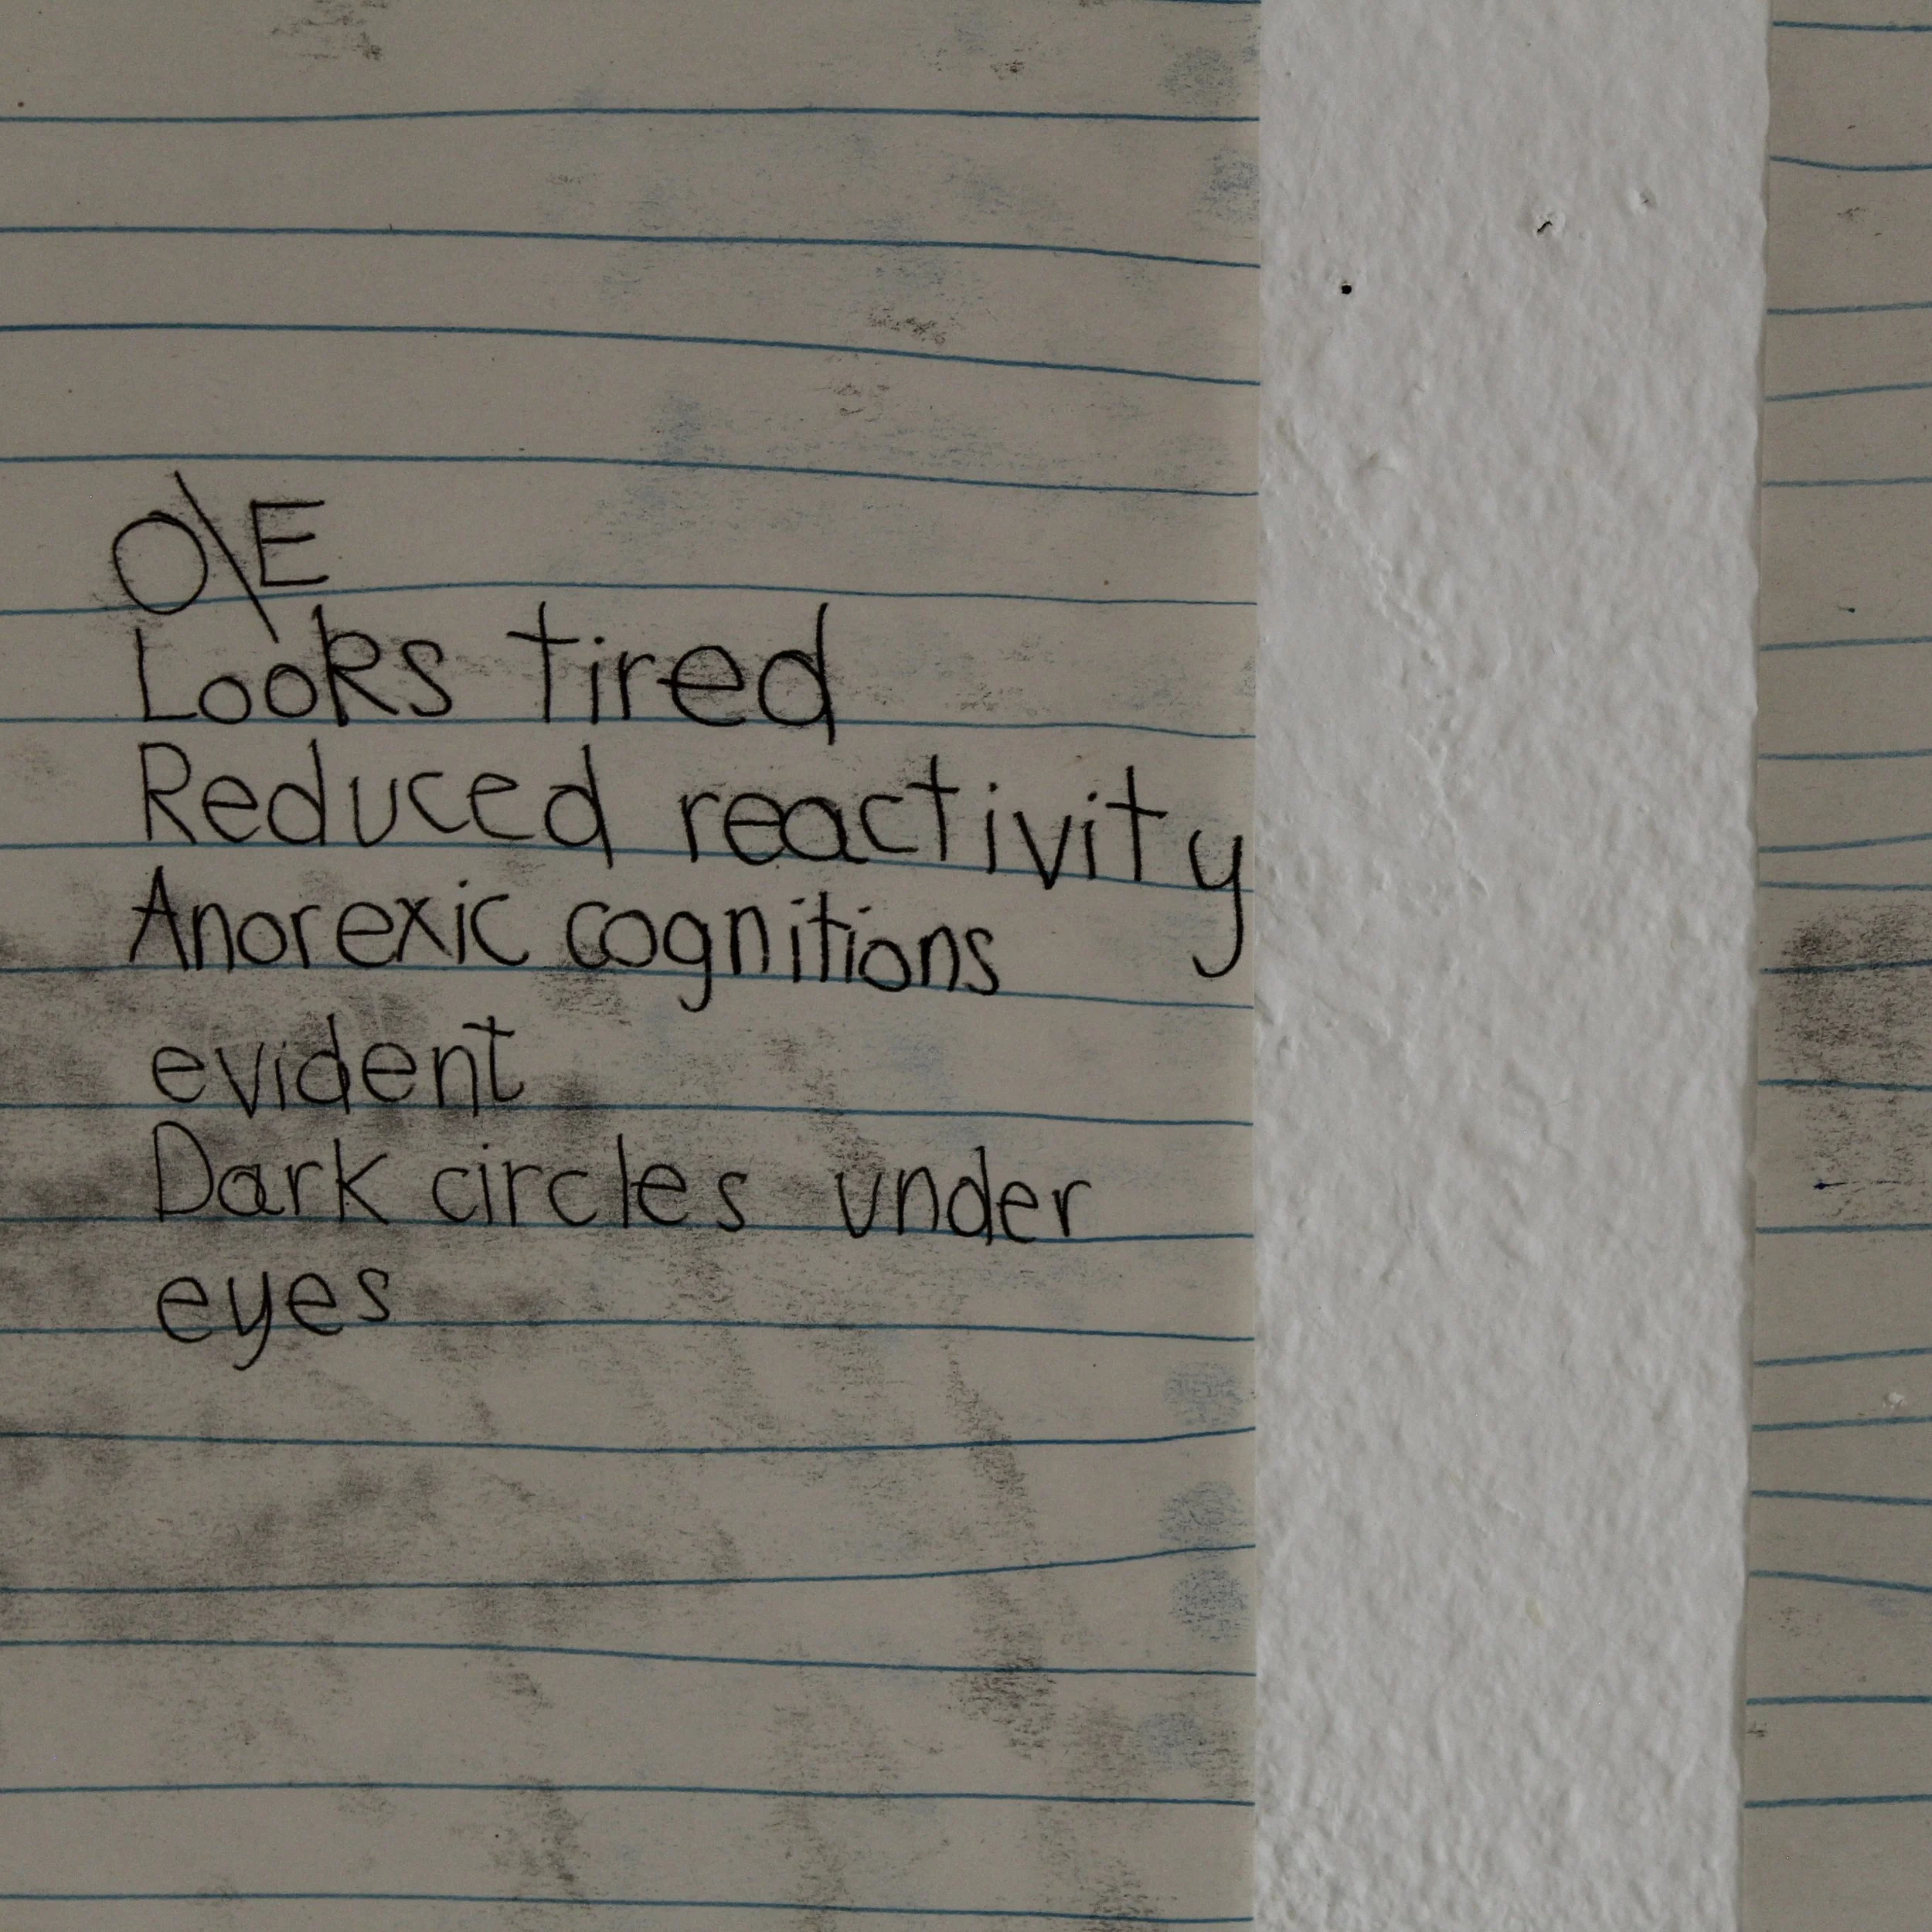 O\E
Looks tired
Reduced reactivity
Anorexic cognitions
evident
Dark circles under
eyes